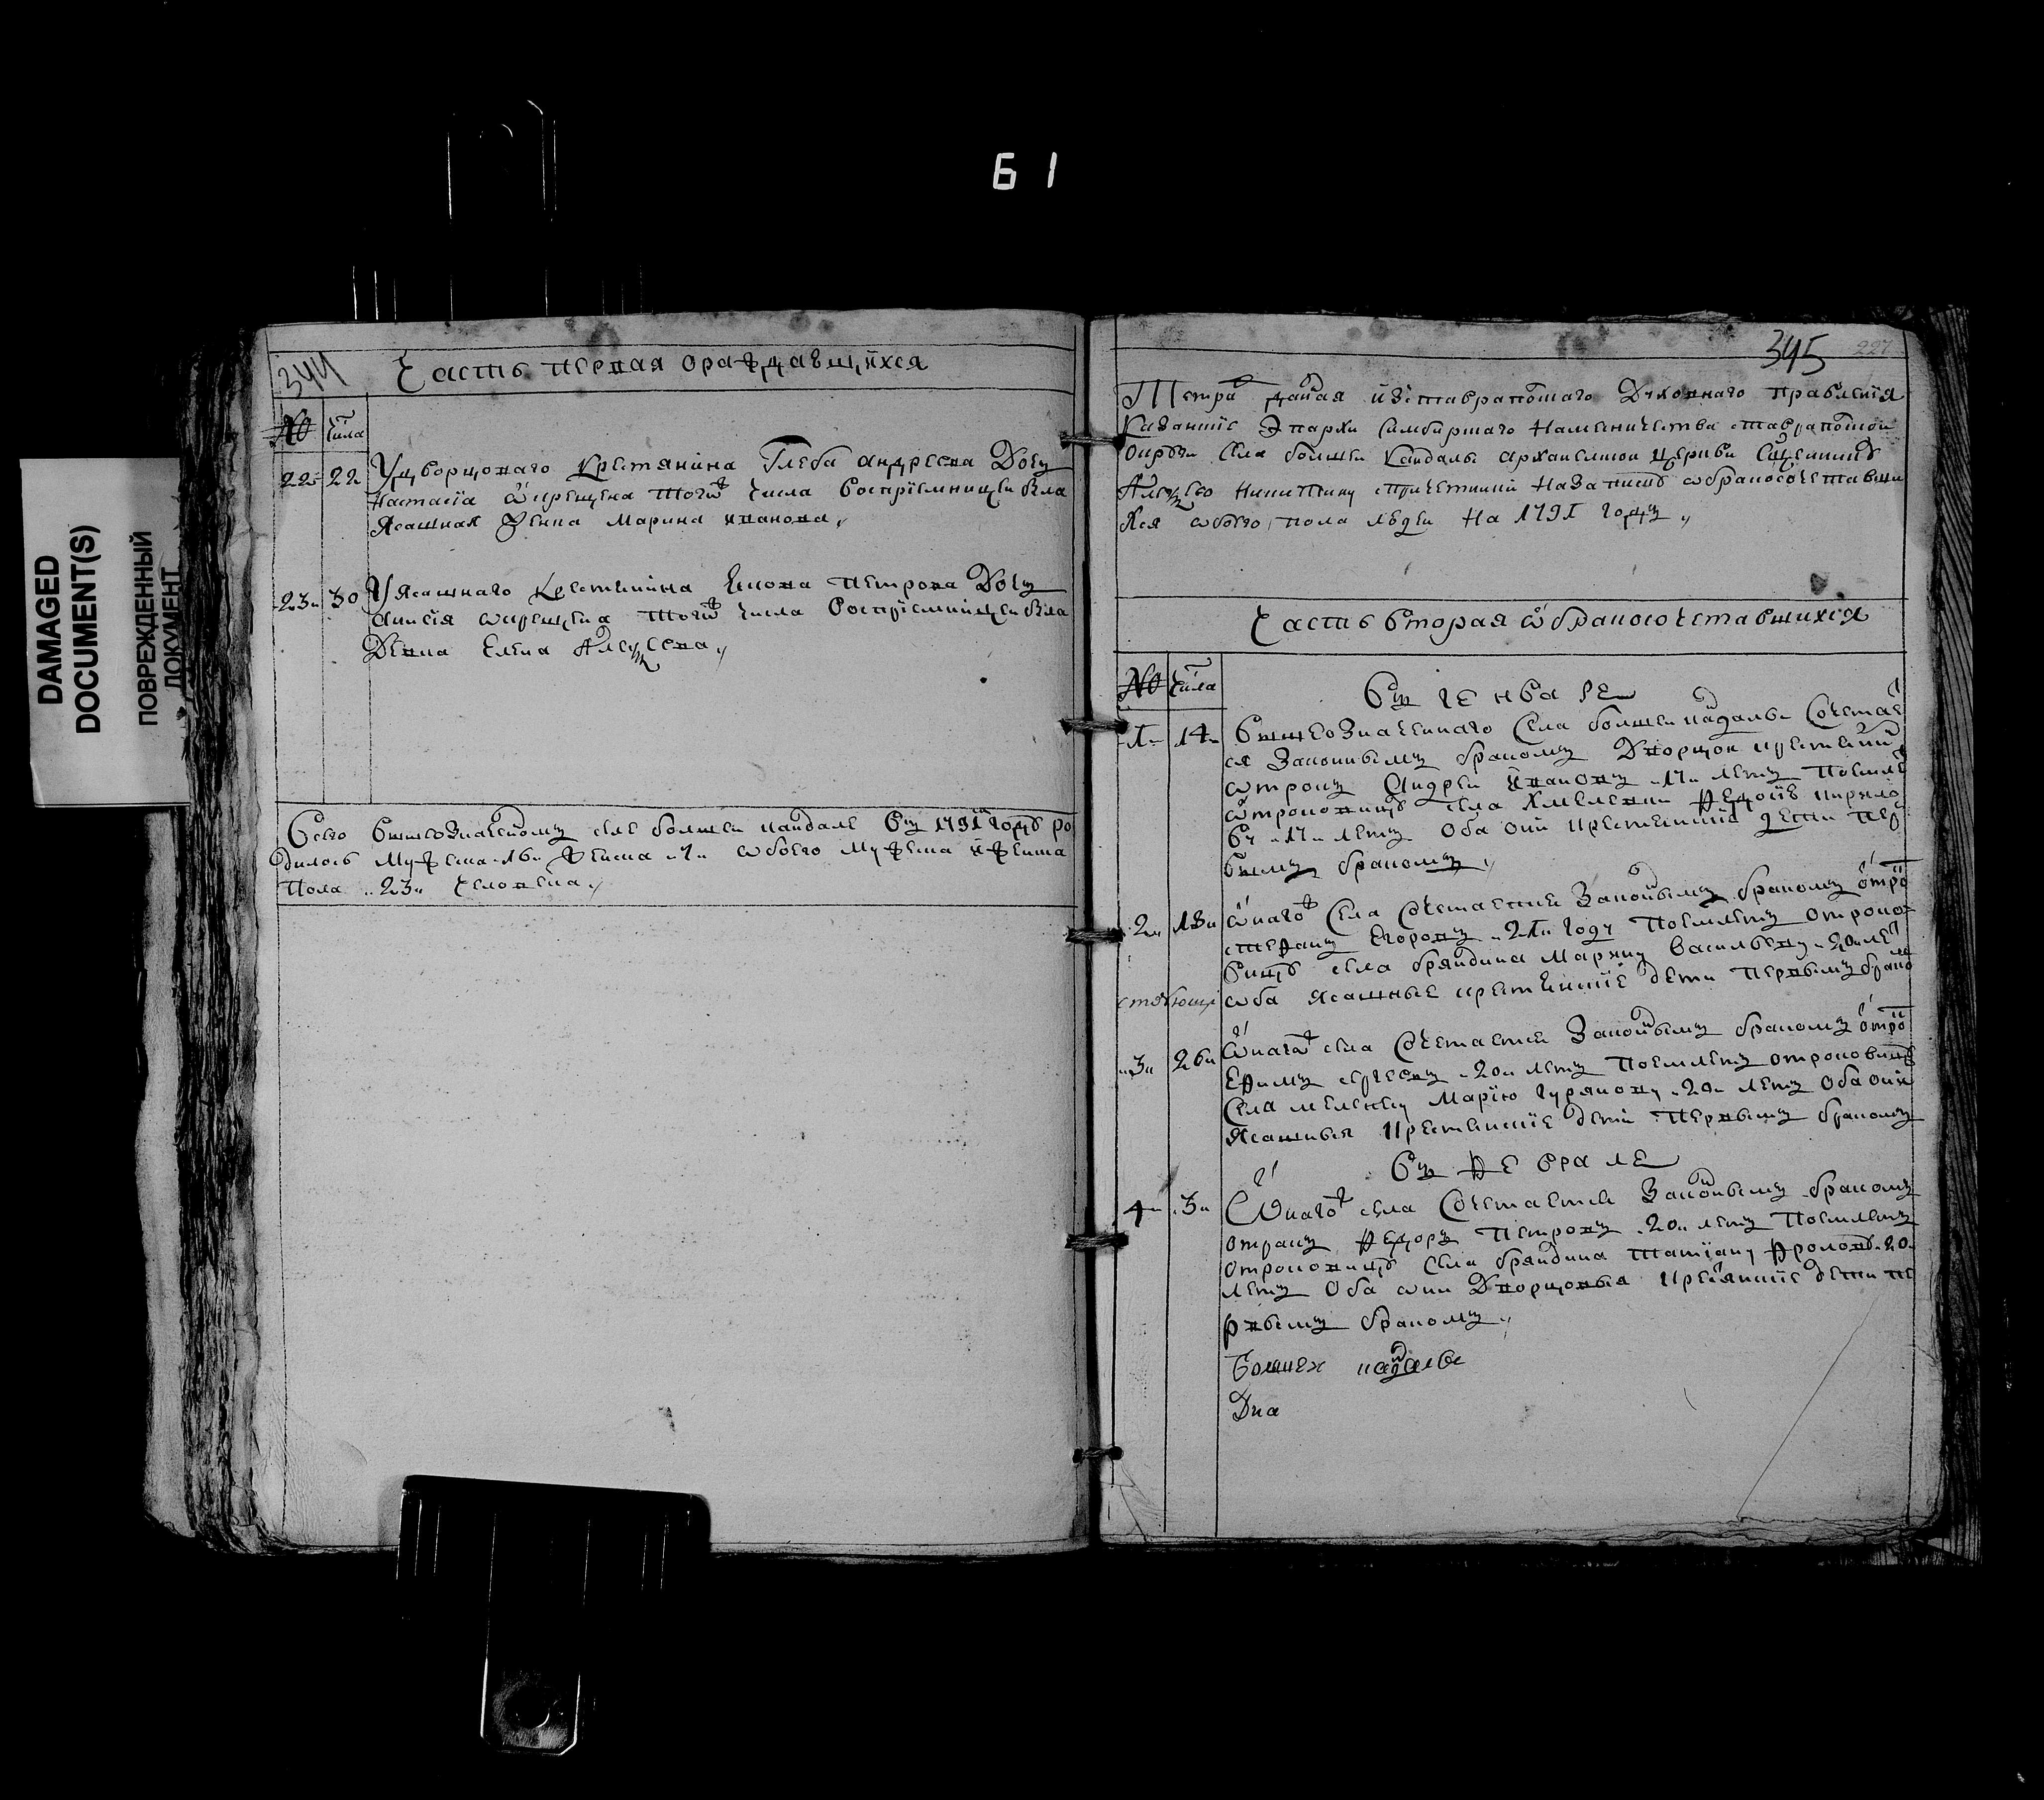 61
DAMAGED
DOCUMENT(S)
ПОВРЕЖДЕННЫЙ
ДОКУМЕНТ
344
Часть первая ораждавшихся
№ числа
22 22 У дворцоваго крестянина Глеба андреева Дочъ
настасїа крещена тогѡж числа восприемницеи была
ясашная жена марина иванова
23 30 У ясашнаго крестянина петрова Дочъ
крещена тогѡж числа восприемницеи была
Девка елена алеѯеева
Всево вышеозначенному селе болшеи кандале въ 1791м годѣ ро
дилось мужеска 16 женска 7 обоего мужеска и женска
пола 23 человека
345
227
Тетрад даная из ставрапольскаго Духовнаго правления
Казанскои Епархи симбирскаго наместничества ставрапольскои
округи села болшеи кандалы архангелскои церкви священнику
Алеѯею никитину с причетники на записку ѡ бракосочетавши
хся обоего пола людеи на 1791 годъ
Часть вторая ѡ бракосочетавшихся
№ числа
въ генваре
1 14 вышеозначеннаго села болшеи кандалы сочетал
ся законнымъ бракомъ Дворцов крестьянин
отрокъ Андреи ивановъ 17 летъ поемле
отроковицу села хмелевки
въ 17 летъ оба они крестьянские дети пер
вымъ бракомъ
2 18 ѡнагож села сочетается законнымъ бракомъ отрок
стефанъ егоровъ 21 году поемлетъ отроко
вицу села бряндина марину васильеву 20 ле
оба ясашные крестьянские дети первымъ брако
3 26 ѡнагож села сочетается законнымъ бракомъ отрок
ефимъ сергеевъ 20 летъ поемлетъ отроковицу
села марию гурянову 20 летъ оба они
ясашныя крестьянские дети первымъ бракомъ
въ феврале
4 3 ѡнагож села сочетается законнымъ бракомъ
отрокъ федоръ петровъ 20 летъ поемлетъ
отроковицу села бряндина татияну фролову 20
летъ оба они Дворцовыя крестянские дети пе
рвымъ бракомъ
болшеи кандалы